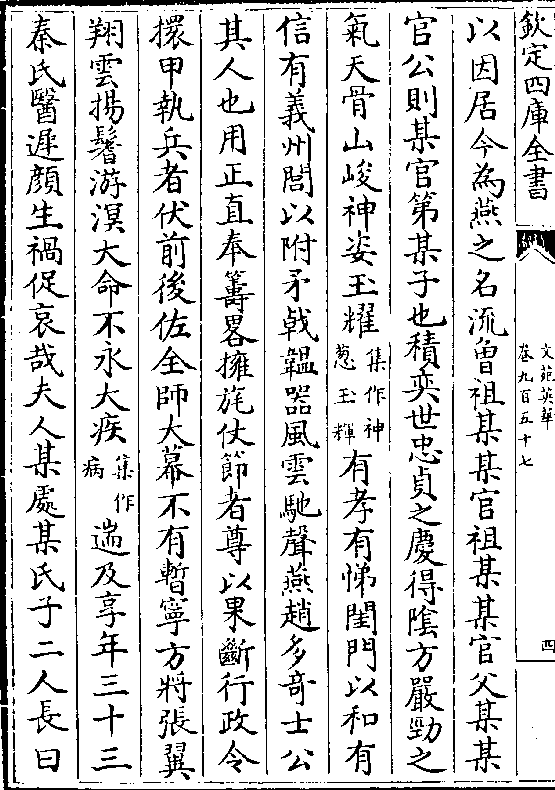 欽定四庫全書
文苑英華
卷九百五十七
四
以因居今為燕之名流曾祖某某官祖某某官父某某
官公則某官第某子也積奕世忠貞之慶得陰方嚴勁之
氣天骨山峻神姿玉耀集作神葱玉輝有孝有悌閨門以和有
信有義州閭以附矛戟韞器風雲馳聲燕趙多奇士公
其人也用正直奉籌畧擁旄仗節者尊以果斷行政令
擐甲執兵者伏前後佐全師大幕不有暫寧方將張翼
翔雲揚鬐游溟大命不永大疾集作病遄及享年三十三
秦氏醫遲顔生禍促哀哉夫人某處某氏子二人長曰